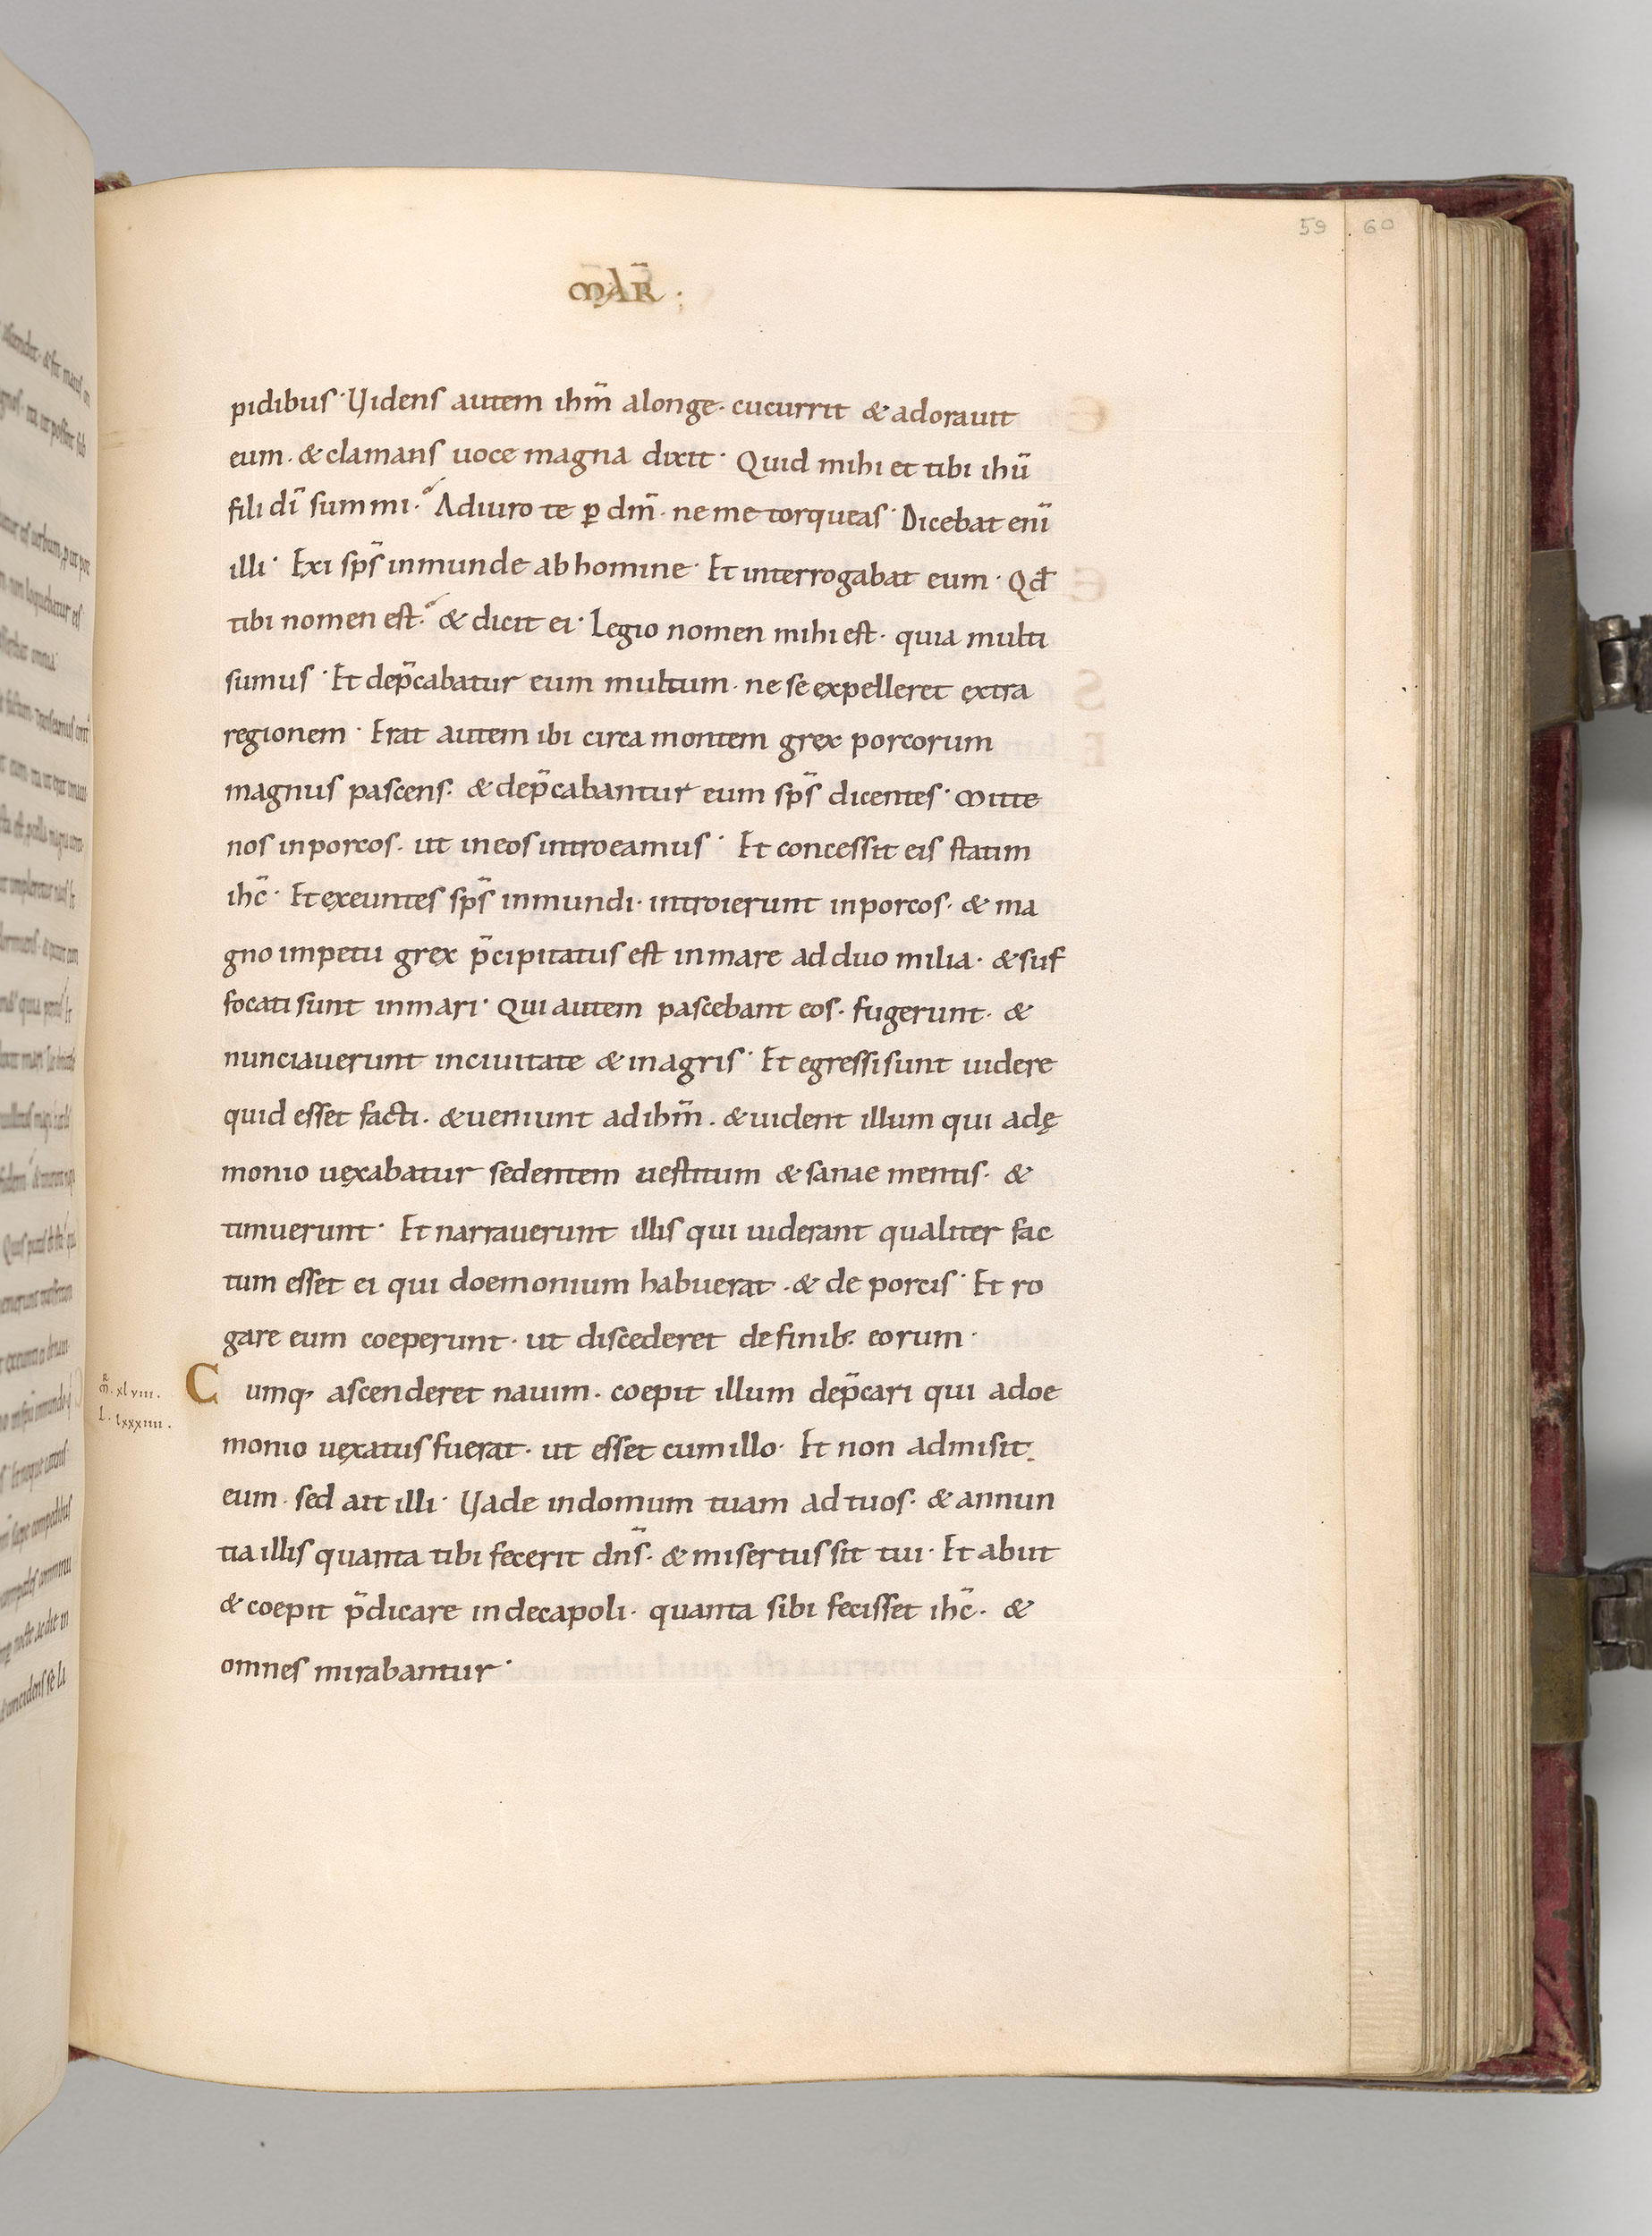 59 60
MAR̄ .
pidibus · Videns autem ihm̄ alonge · cucurrit & adorauit
eum · & clamans uoce magna dixit · Quid mihi et tibi ihū
fili dī summi · Adiuro te ꝑ dm̄ · ne me torqueas · Dicebat enī
illi · Exi sps̄ inmunde ab homine · Et interrogabat eum · Qđ
tibi nomen est · & dicit ei · Legio nomen mihi est · quia multi
sumus · Et dep̄cabatur eum multum · ne se expelleret extra
regionem · Erat autem ibi circa montem grex porcorum
magnus pascens · & dep̄cabantur eum sps̄ dicentes · Mitte
nos inporcos · ut ineos introeamus · Et concessit eis statim
ihc̄ · Et exeuntes sps̄ inmundi · introierunt inporcos · & ma
gno impetu grex p̄cipitatus est inmare ad duo milia · & suf
focati sunt inmari · Qui autem pascebant eos · fugerunt · &
nunciauerunt inciuitate & inagris · Et egressi sunt uidere
quid esset facti · & ueniunt ad ihm̄ · & uident illum qui adę
monio uexabatur sedentem uestitum & sanae mentis · &
timuerunt · Et narrauerunt illis qui uiderant qualiter fac
tum esset ei qui doemonium habuerat · & de porcis · Et ro
gare eum coeperunt · ut discederet definib; eorum ·
m̄ . xlviii .
Cumq; ascenderet nauim · coepit illum dep̄cari qui adoe
L . lxxxiiii .
monio uexatus fuerat · ut esset cum illo · Et non admisit
eum · sed ait illi · Vade indomum tuam ad tuos · & annun
tia illis quanta tibi fecerit dns̄ · & misertus sit tui · Et abiit
& coepit p̄dicare indecapoli · quanta sibi fecisset ihc̄ · &
omnes mirabantur ·